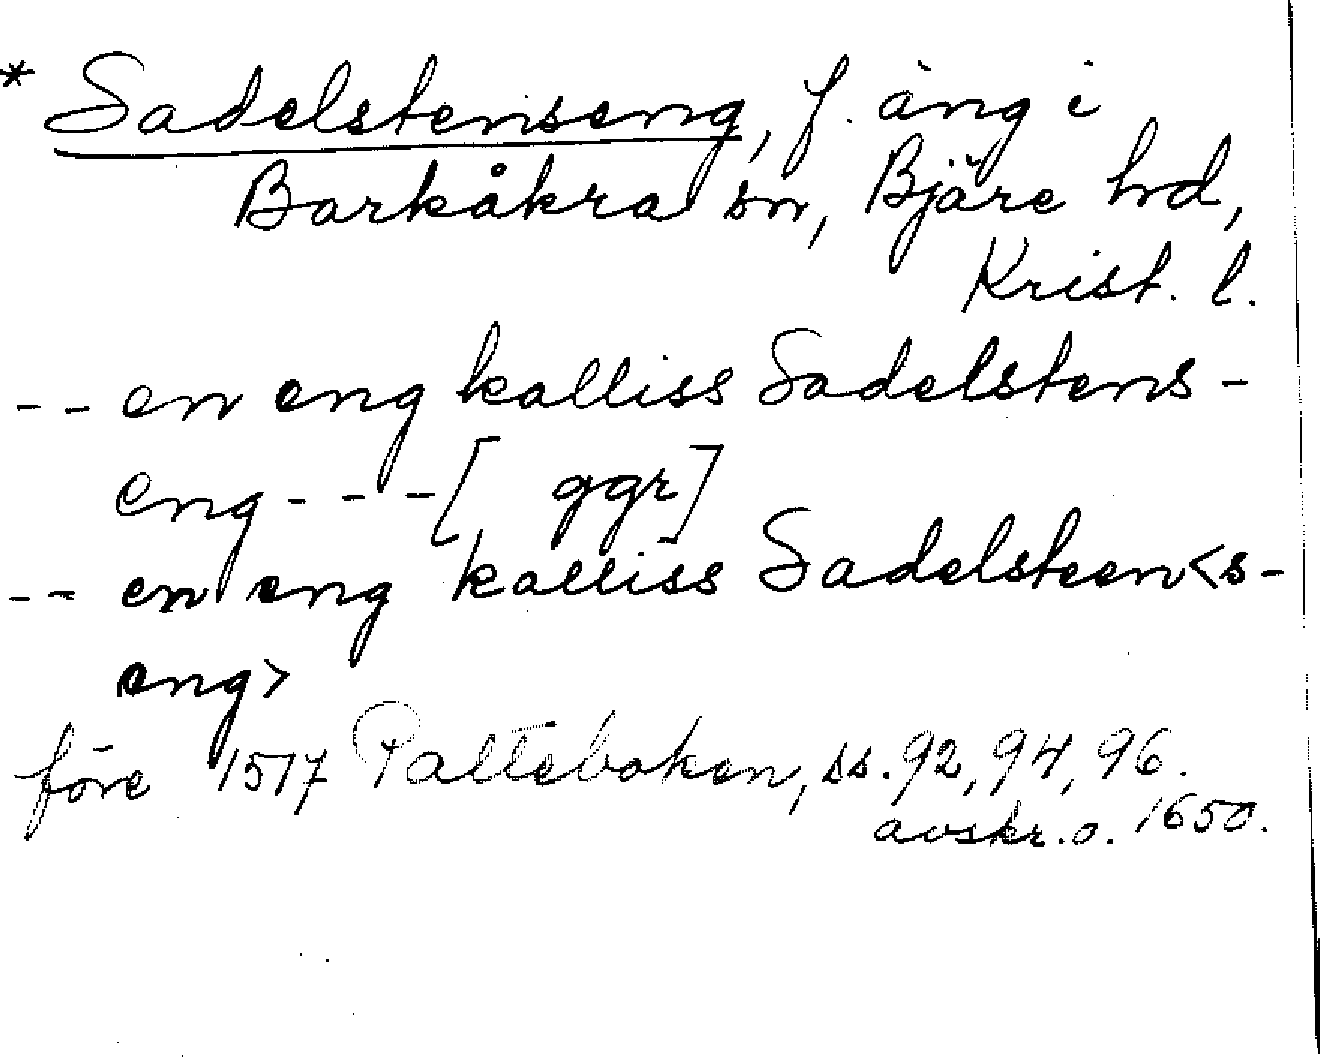 * Sadelstenseng, f. äng i
Barkåkra sn, Bjäre hd,
Krist. l.
-- en eng kalliss Sadelstens-
eng---[ ggr]
-- en eng kalliss Sadelsteen<s-
eng>
före 1517 Palteboken, ss. 92, 94, 96.
avskr. o. 1650.